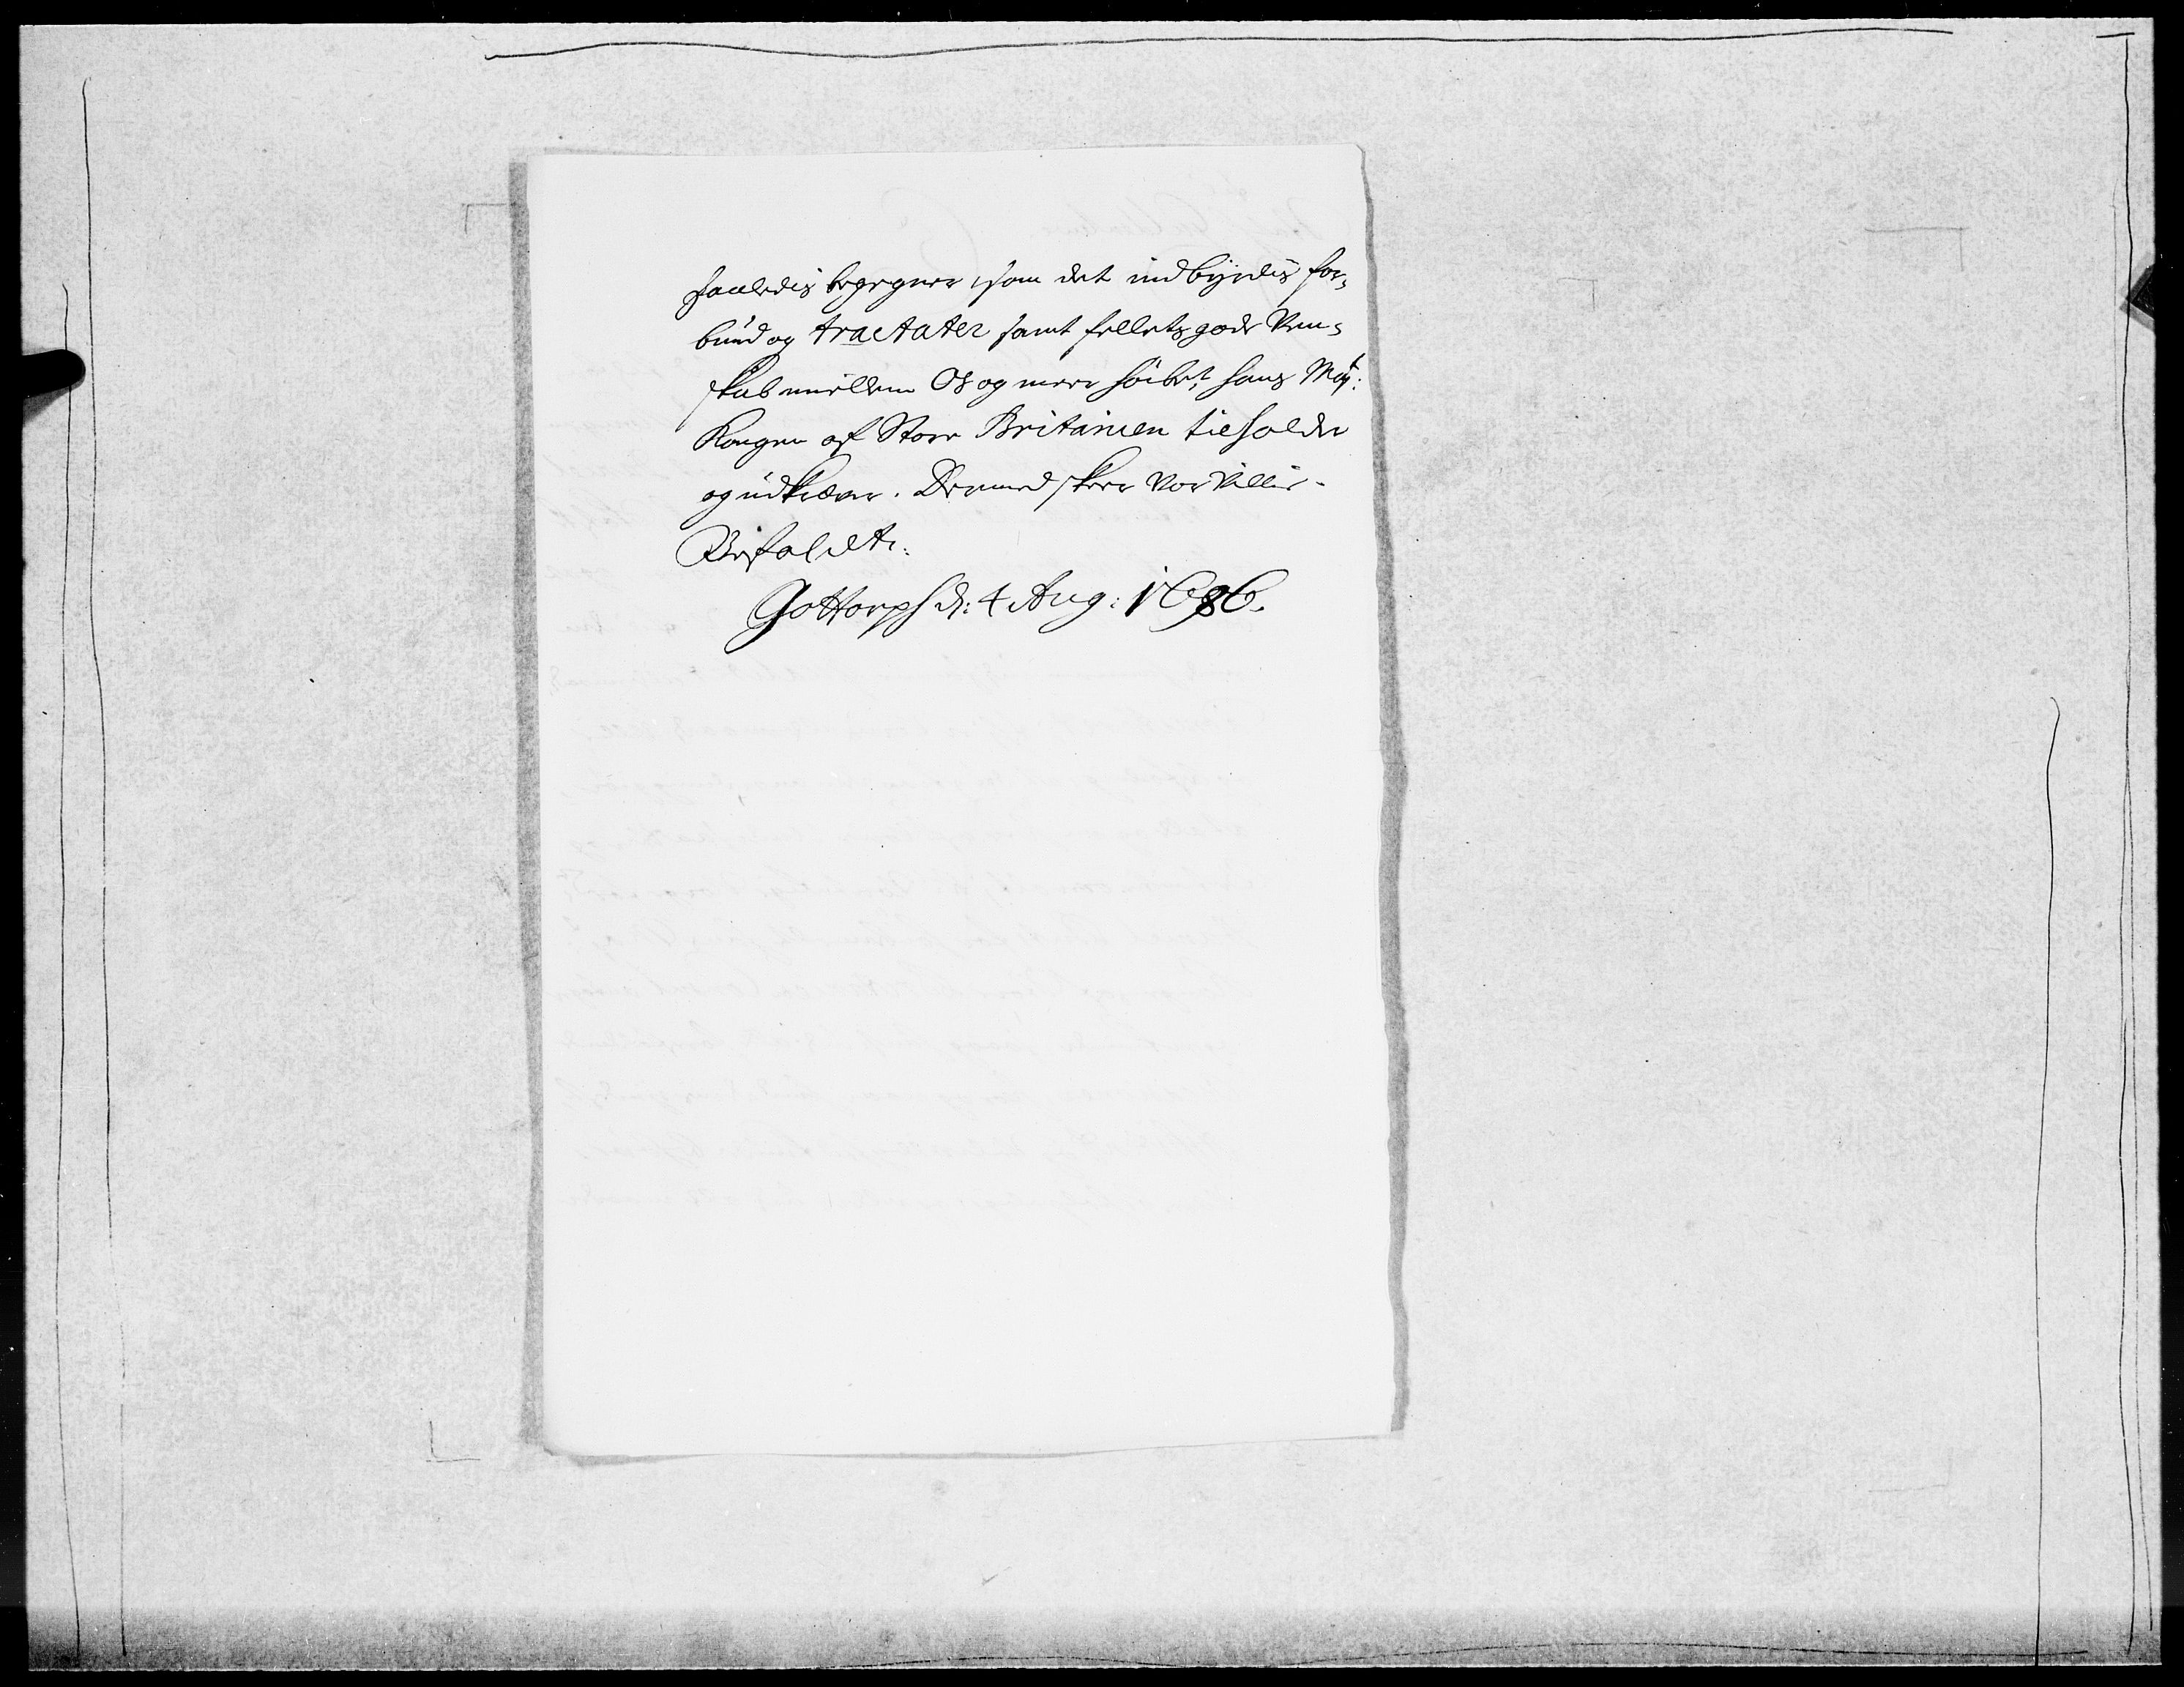 saaledis begegner, som det indbyrdis for¬
bund og tractater samt forrets gode Ven¬
skab mellem Os og meere høibte hans Maj:
Kongen af Store Britanien tilholder
og udkræver. Dermed skeer Vor Villie.
Befalet.
Gottorp d: 4 Aug: 1686.